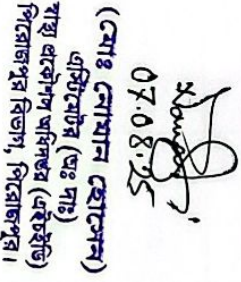 07.08.25
(মোঃ হোসেন)
এস্টিমেটর (চঃ দাঃ)
স্বাস্থ্য প্রকৌশল অধিদপ্তর (এইচইডি)
পিরোজপুর বিভাগ, পিরোজপুর।